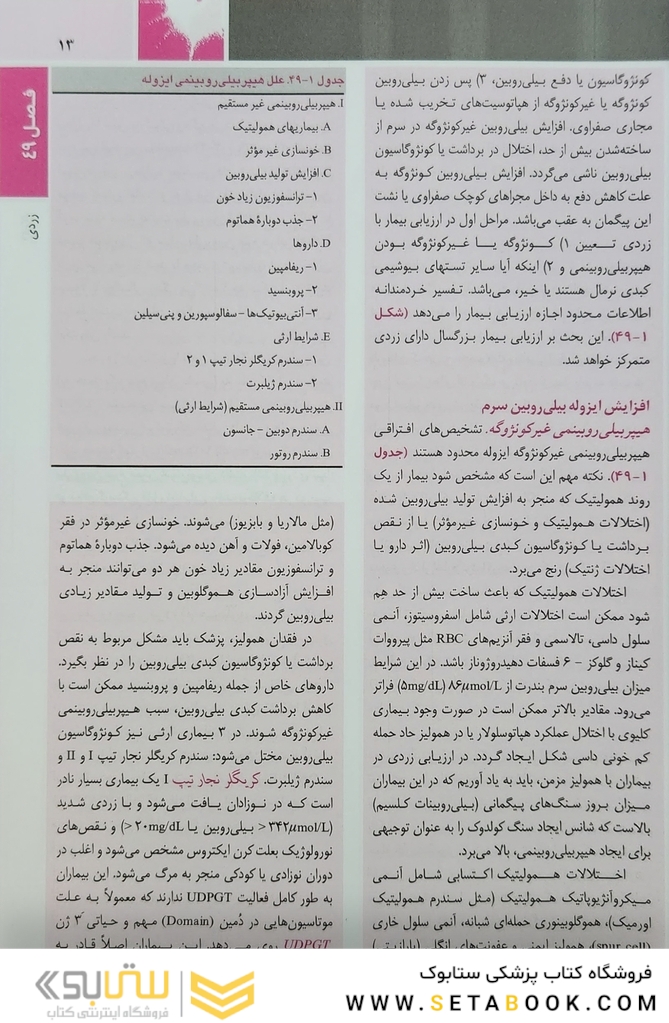 ۱۳
فصل ۴۹
زردی
کونژوگاسیون یا دفع بیلی‌روبین، ۳) پس زدن بیلی‌روبین
کونژوگه یا غیرکونژوگه از هپاتوسیت‌های تخریب شده یا
مجاری صفراوی. افزایش بیلی‌روبین غیرکونژوگه در سرم از
ساخته‌شدن بیش از حد، اختلال در برداشت یا کونژوگاسیون
بیلی‌روبین ناشی می‌گردد. افزایش بیلی‌روبین کونژوگه به
علت کاهش دفع به داخل مجراهای کوچک صفراوی یا نشت
این پیگمان به عقب می‌باشد. مراحل اول در ارزیابی بیمار با
زردی تعیین ۱) کونژوگه یا غیرکونژوگه بودن
هیپربیلی‌روبینمی و ۲) اینکه آیا سایر تستهای بیوشیمی
کبدی نرمال هستند یا خیر، می‌باشد. تفسیر خردمندانه
اطلاعات محدود اجازه ارزیابی بیمار را می‌دهد (شکل
۱-۴۹). این بحث بر ارزیابی بیمار بزرگسال دارای زردی
متمرکز خواهد شد.
افزایش ایزوله بیلی‌روبین سرم
هیپربیلی‌روبینمی غیرکونژوگه. تشخیص‌های افتراقی
هیپربیلی‌روبینمی غیرکونژوگه ایزوله محدود هستند (جدول
۱-۴۹). نکته مهم این است که مشخص شود بیمار از یک
روند همولیتیک که منجر به افزایش تولید بیلی‌روبین شده
(اختلالات همولیتیک و خونسازی غیرمؤثر) یا از نقص
برداشت یا کونژوگاسیون کبدی بیلی‌روبین (اثر دارو یا
اختلالات ژنتیک) رنج می‌برد.
اختلالات همولیتیک که باعث ساخت بیش از حد هِم
شود ممکن است اختلالات ارثی شامل اسفروسیتوز، آنمی
سلول داسی، تالاسمی و فقر آنزیم‌های RBC مثل پیرووات
کیناز و گلوکز - ۶ فسفات دهیدروژوناز باشد. در این شرایط
میزان بیلی‌روبین سرم بندرت از ۸۶μmol/L (۵mg/dL) فراتر
می‌رود. مقادیر بالاتر ممکن است در صورت وجود بیماری
کلیوی با اختلال عملکرد هپاتوسلولار یا در همولیز حاد حمله
کم خونی داسی شکل ایجاد گردد. در ارزیابی زردی در
بیماران با همولیز مزمن، باید به یاد آوریم که در این بیماران
میزان بروز سنگ‌های پیگمانی (بیلی‌روبینات کلسیم)
بالاست که شانس ایجاد سنگ کولدوک را به عنوان توجیهی
برای ایجاد هیپربیلی‌روبینمی، بالا می‌برد.
اختلالات همولیتیک اکتسابی شامل آنمی
میکروآنژیوپاتیک همولیتیک (مثل سندرم همولیتیک
اورمیک)، هموگلوبینوری حمله‌ای شبانه، آنمی سلول خاری
(spur cell)، همولیز ایمنی و عفونت‌های انگلی
جدول ۱-۴۹. علل هیپربیلی‌روبینمی ایزوله
I. هیپربیلی‌روبینمی غیر مستقیم
A. بیماریهای همولیتیک
B. خونسازی غیر مؤثر
C. افزایش تولید بیلی‌روبین
۱- ترانسفوزیون زیاد خون
۲- جذب دوبارهٔ هماتوم
D. داروها
۱- ریفامپین
۲- پروبنسید
۳- آنتی‌بیوتیک‌ها - سفالوسپورین و پنی‌سیلین
E. شرایط ارثی
۱- سندرم کریگلر نجار تیپ ۱ و ۲
۲- سندرم ژیلبرت
II. هیپربیلی‌روبینمی مستقیم (شرایط ارثی)
A. سندرم دوبین - جانسون
B. سندرم روتور
(مثل مالاریا و بابزیوز) می‌شوند. خونسازی غیرمؤثر در فقر
کوبالامین، فولات و آهن دیده می‌شود. جذب دوبارهٔ هماتوم
و ترانسفوزیون مقادیر زیاد خون هر دو می‌توانند منجر به
افزایش آزادسازی هموگلوبین و تولید مقادیر زیادی
بیلی‌روبین گردند.
در فقدان همولیز، پزشک باید مشکل مربوط به نقص
برداشت یا کونژوگاسیون کبدی بیلی‌روبین را در نظر بگیرد.
داروهای خاص از جمله ریفامپین و پروبنسید ممکن است با
کاهش برداشت کبدی بیلی‌روبین، سبب هیپربیلی‌روبینمی
غیرکونژوگه شوند. در ۳ بیماری ارثی نیز کونژوگاسیون
بیلی‌روبین مختل می‌شود: سندرم کریگلر نجار تیپ I و II و
سندرم ژیلبرت. کریگلر نجار تیپ I یک بیماری بسیار نادر
است که در نوزادان یافت می‌شود و با زردی شدید
(۳۴۲μmol/L < بیلی‌روبین یا ۲۰mg/dL <) و نقص‌های
نورولوژیک بعلت کرن ایکتروس مشخص می‌شود و اغلب در
دوران نوزادی یا کودکی منجر به مرگ می‌شود. این بیماران
به طور کامل فعالیت UDPGT ندارند که معمولاً به علت
موتاسیون‌هایی در دُمین (Domain) مهم و حیاتی ۳َ ژن
UDPGT روی می‌دهد. این بیماران اصلاً قادر به
فروشگاه کتاب پزشکی ستابوک
WWW.SETABOOK.COM
ستابوک
فروشگاه اینترنتی کتاب